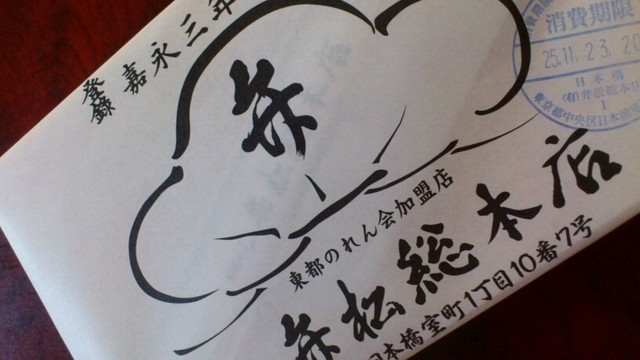 登録 嘉永三年
弁
東都のれん会加盟店
弁松総本店
日本橋室町1丁目10番7号
消費期限
25.11.23.20
日本橋
(有)弁松総本店
1
東京都中央区日本橋